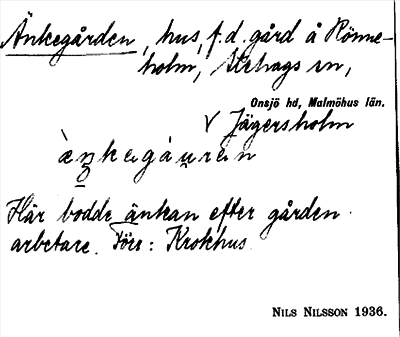 Änkegården, hus, f.d. gård å Rönne-
holm, Stehags sn,
Onsjö hd, Malmöhus län.
V Jägersholm
àŋkagáu̯ran
Här bodde änkan efter gården
arbetare. Jfr: Krokhus
NILS NILSSON 1936.